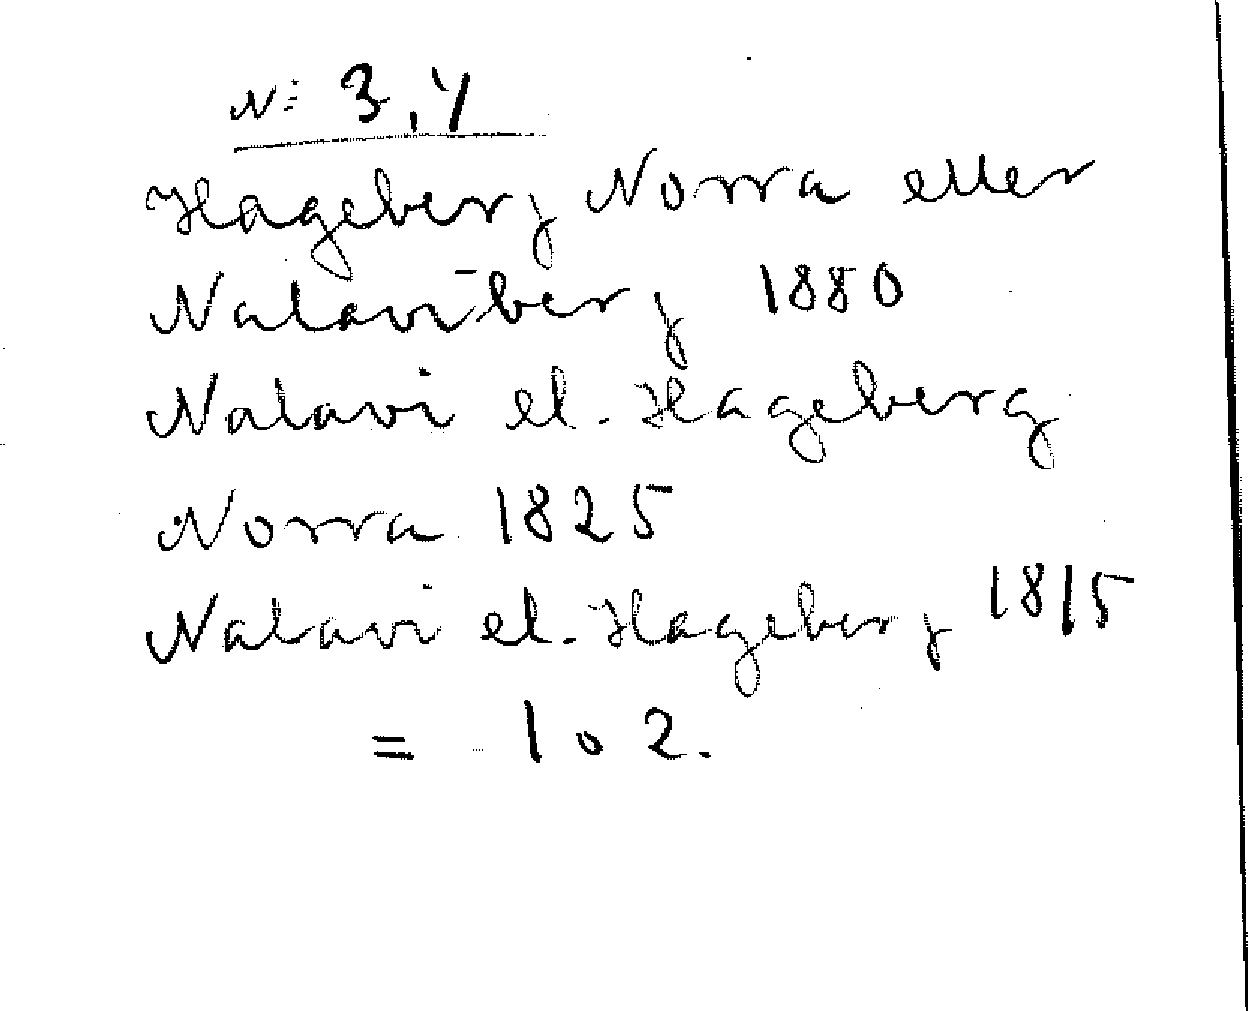 N: 3, 4
Hageberg Norra eller
Nalaviberg 1880
Nalavi el. Hageberg
Norra 1825
Nalavi el. Hageberg 1815
= 1 o 2.